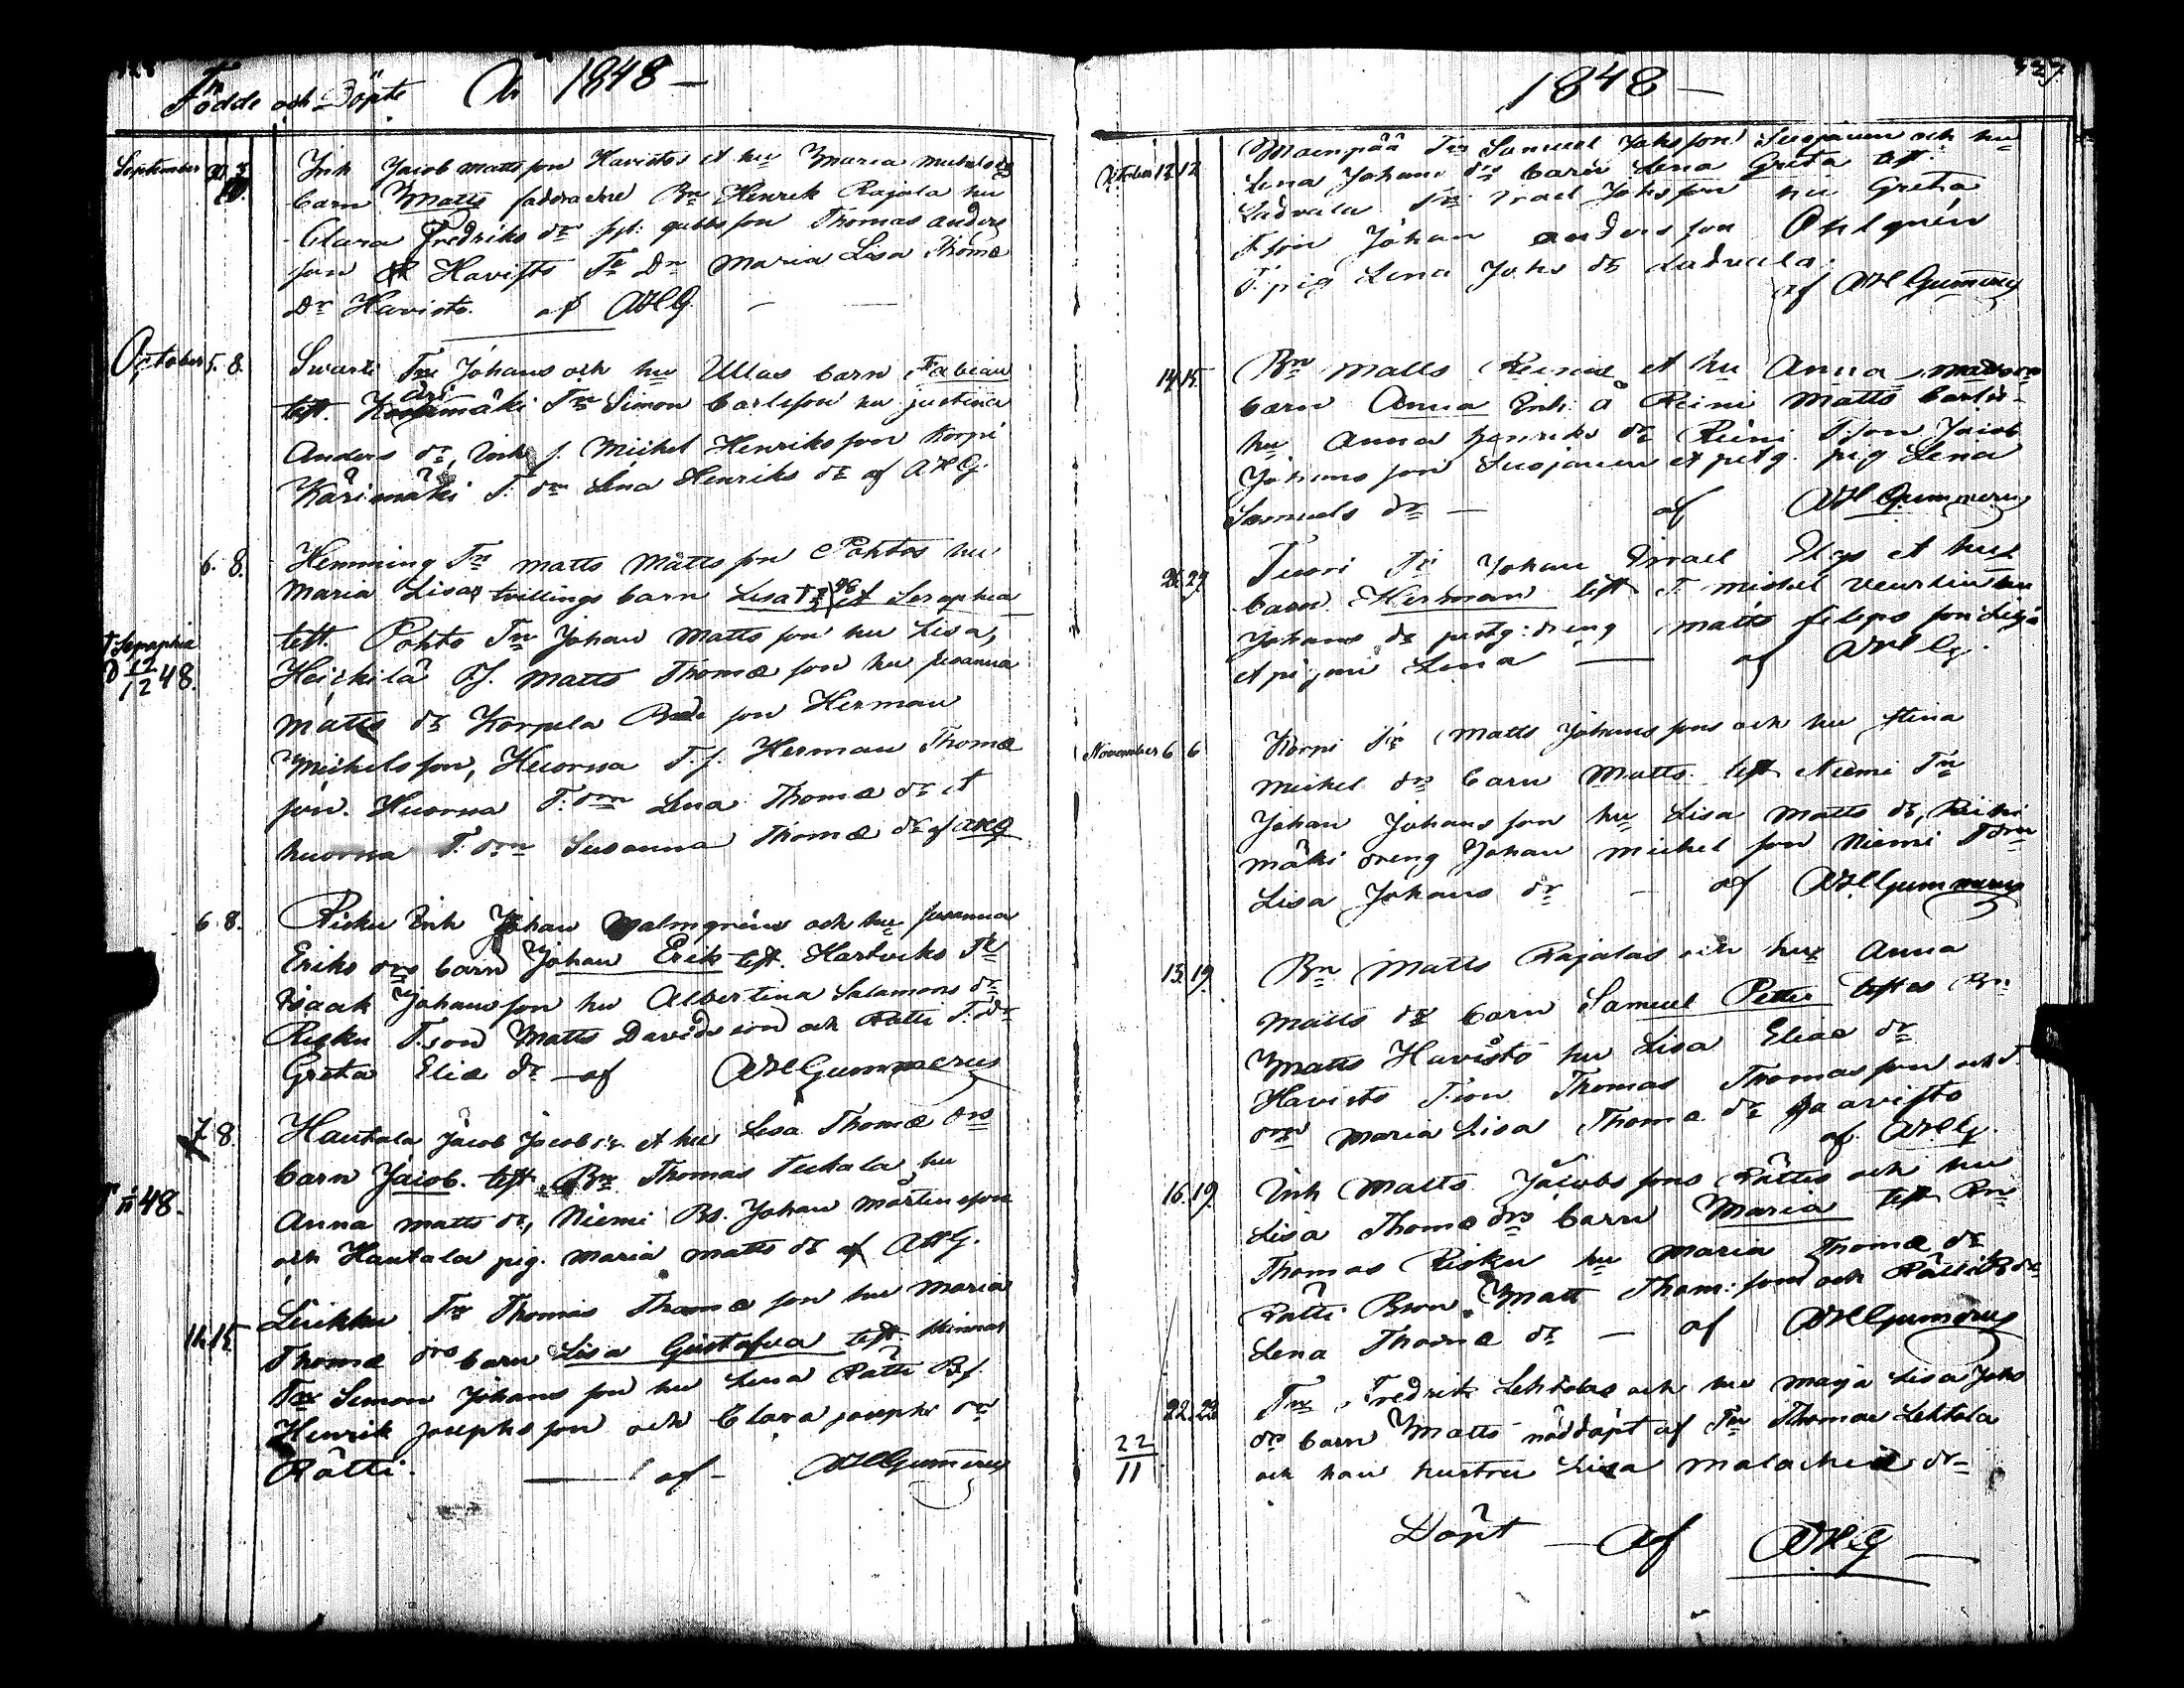 Födde och Döpte År 1848 —
September 30. 3/10.
Inh Jacob Mattsson Havistos et hu Maria
barn Matts faddrarne Bn Henrik Rajala hu
Clara Fredriks dr Thomas Anders
son Havisto Tn Dn Maria Lisa Thomæ
Dr Havisto. af AHG. —
October 5. 8.
Swarti Tn Johans och hu Ullas barn Fabian
test. Karimäki Tn Simon Carlsson hu Justina
Anders dr, Inh s. Michel Henriksson Korpi
Karimäki T. dn Lena Henriks dr af AHG.
6. 8.
Hemming Tn Matts Mattsson Pohtos hu
Maria Lisas tvillings barn Lisa et Seraphia
† Seraphia
48.
test. Pohto Tn Johan Mattsson hu Lisa,
Heickilä Matts Thomæ son hu Susanna
Matts dr Korpela son Herman
Michelsson, Huorna T. s. Herman Thomæ
son. Huorna T. drn Lena Thomæ dr et
huorna T. drn Susanna Thomæ dr af AHG
6 8.
Risku Inh Johan Malmgréns och hu Susanna
Eriks drs barn Johan Erik test. Hartviks Tn
Isaak Johansson hu Albertina Salamons dr
Risku T.son Matts Davidsson och Rätti T. dr
Greta Eliæ dr — af AHGummerus
7. 8.
Hautala Jacob Jacobs et hu Lisa Thomæ drs
barn Jacob. test. Bn Thomas Teckala hu
† 48.
Anna Matts dr, Niemi Bs. Johan Mårtensson
och Hautala pig. Maria Matts dr af AHG.
Leikku Tn Thomas Thomæ son hu Maria
11. 15
Thomæ drs barn Lisa Gustafva test.
Tn Simon Johansson hu Lena Rätti Bs.
Henrik Josephsson och Clara Josephs dr
Rätti. — af — AHGummerus
1848 —
October 12. 12.
Maenpää Tn Samuel Johsson Suojanen och hu
Lena Johans drs barn Lena Greta test.
Ladvala Tn Israel Johsson hu Greta
T. son Johan Andersson Ohlgrén
T. pig Lena Johs dr Ladvala.
af AHGummerus
14. 15.
Bn Matts Reinis et hu Anna Matts
barn Anna Inh. å Reini Matts Carls
hu Anna Henriks dr Reini T.son Jacob
Johansson Suojanen et pig Lena
Samuels dr — af AHGummerus
26. 29.
Tuori Tn Johan Israel Elgs et hus
barn Herman test T. Michel
Johans dr dreng Matts Filipsson
et Lena — af AHG.
November 6 6
Korpi Tn Matts Johanssons och hu Stina
Michel drs barn Matts test Niemi Tn
Johan Johansson hu Lisa Matts dr,
mäki dreng Johan Michelsson Niemi Tdrn
Lisa Johans dr — af AHGummerus
13. 19.
Bn Matts Rajalas och hus Anna
Matts dr barn Samuel Petter testes Bn
Matts Havisto hu Lisa Eliæ dr
Havisto T.son Thomas Thomasson och T.
drn Maria Lisa Thomæ dr Haavisto
af AHG.
16. 19.
Inh Matts Jacobssons Rättis och hu
Lisa Thomæ drs barn Maria test Bn
Thomas Risku hu Maria Thomæ dr
Rätti Bson. Matt Thom: son och Rätti B dr
Lena Thomæ dr — af AHGummerus
22. 22.
Tn Fredrik Lehtolas och hu Maja Lisa Johs
22/11
drs barn Matts nöddöpt af Tn Thomas Lehtola
och han hustru Lisa Malachiæ dr
Döpt — af AHG —